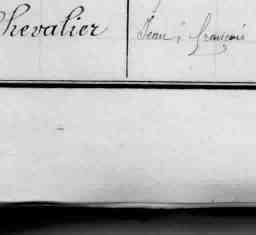 Chevalier Jean, François